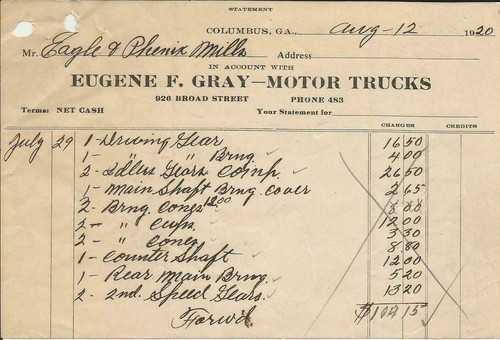 STATEMENT
COLUMBUS, GA., Aug-12 1920
Mr. Eagle & Phenix Mills Address
IN ACCOUNT WITH
EUGENE F. GRAY—MOTOR TRUCKS
926 BROAD STREET PHONE 483
Terms: NET CASH Your Statement for
CHARGES CREDITS
July 29 1- Driving Gear 16 50
1- " " Brng 4 00
2- Idler Gears Comp 26 50
1- Main Shaft Brng. Cover 2 65
2- Brng. Cones 12.00
2- " Cups 12 00
2- " Cones 3 30
1- Counter Shaft 8 80
1- Rear Main Brng. 12 00
2- 2nd. Speed Gears 5 20
13 20
Forw'd. $